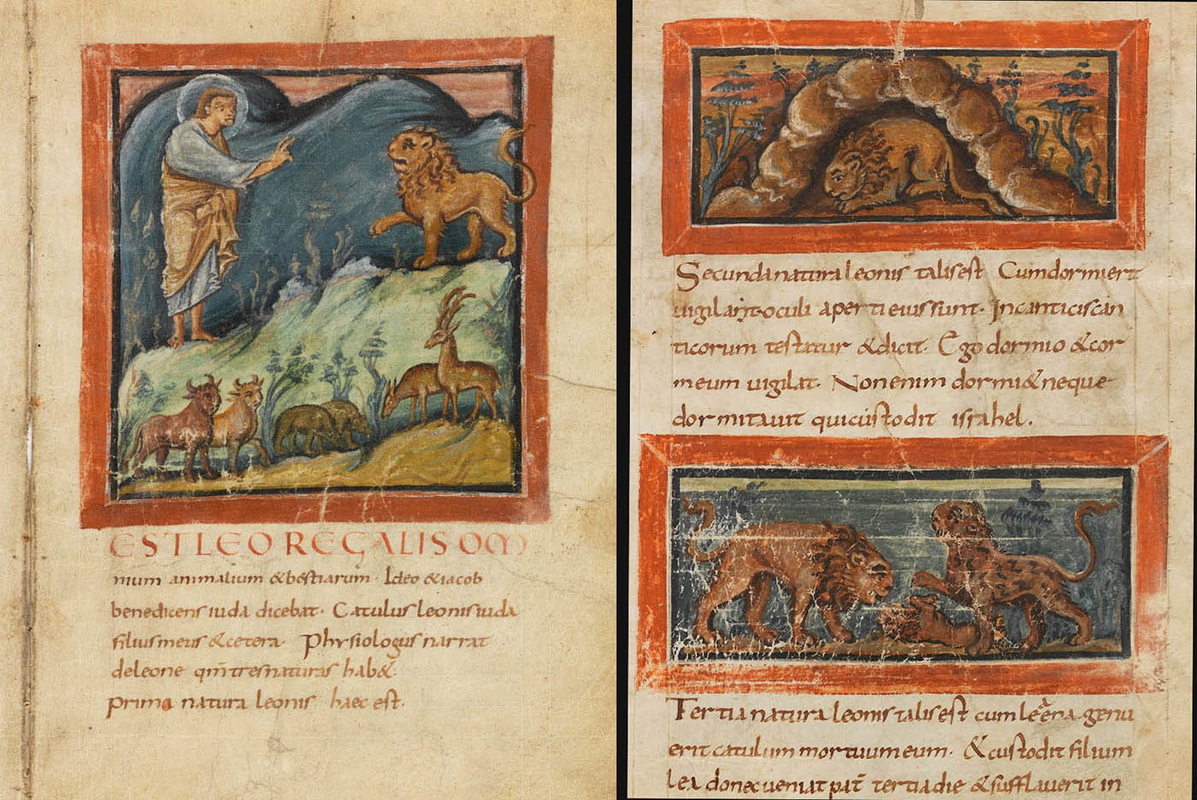 EST LEO REGALIS OM
nium animalium & bestiarum · Ideo & iacob
benedicens iuda dicebat · Catulus leonis iuda
filius meus & cetera · Physiologus narrat
de leone qm̄ tres naturas hab&·
prima natura leonis haec est·
Secunda natura leonis talis est Cum dormierit
oculi aperti eius sunt · In canticis can
ticorum testatur & dicit · Ego dormio & cor
meum uigilat · Non enim dormi& neque
dormitauit qui custodit israhel.
Tertia natura leonis talis est cum genu
erit catulum mortuum eum · & custodit filium
lea donec ueniat pat̄ tertia die & sufflauerit in